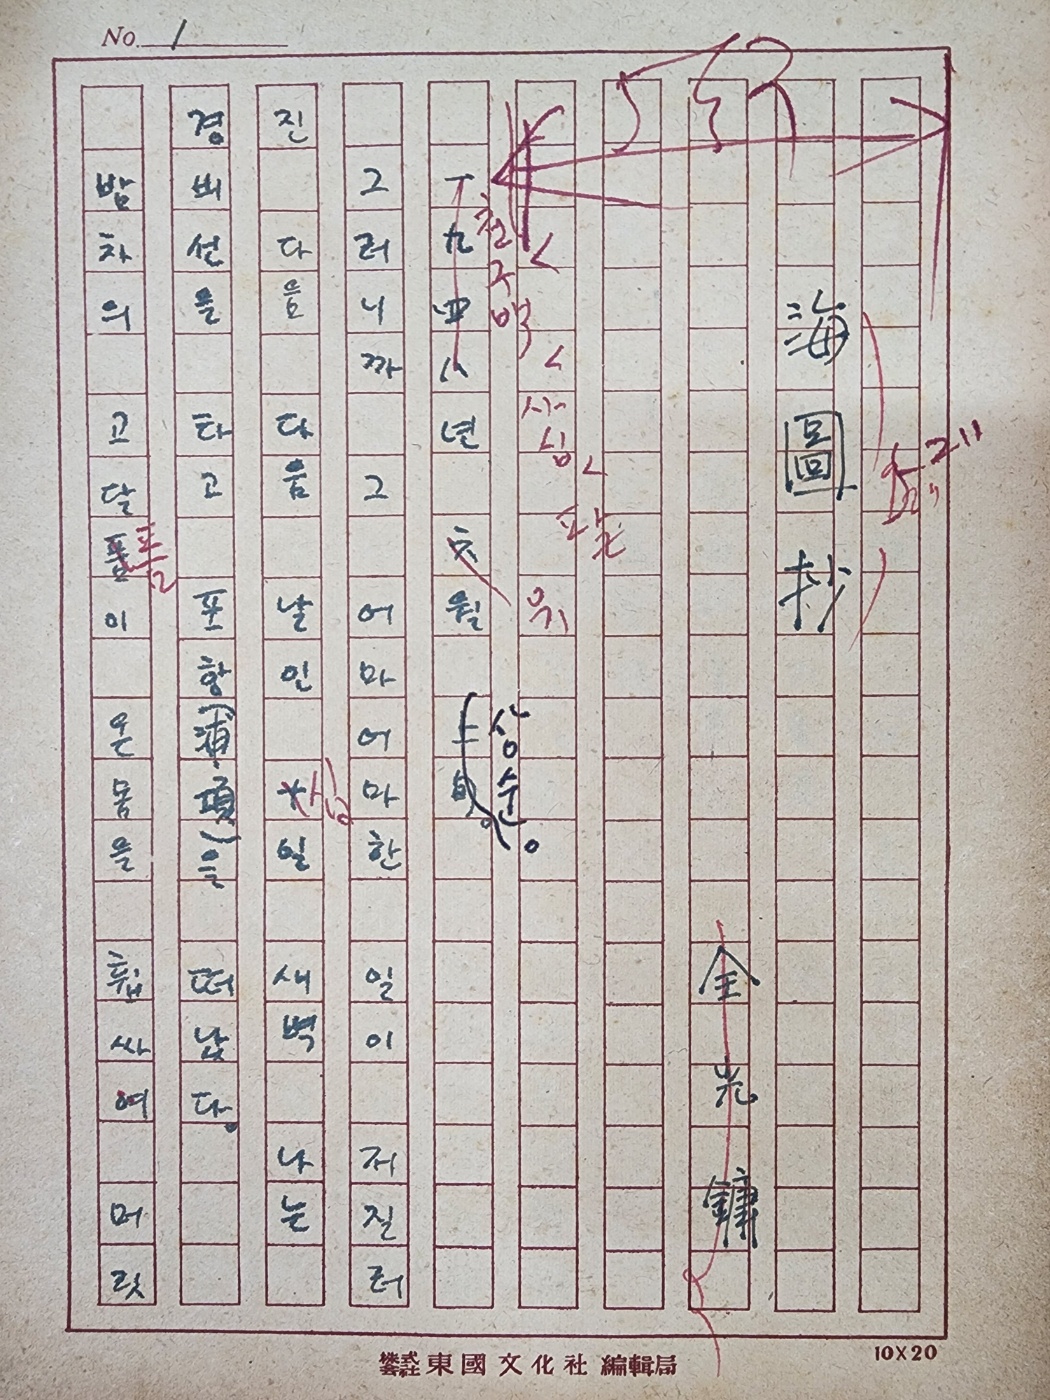 No. 1
海圖抄
金光鏞
천구백 사십 팔 유
상순。
一九四八년 六월 上旬。
그러니까 그 어마어마한 일이 저질러
진 다음 다음 날인 십일 새벽 나는
경비선을 타고 포항(浦項)을 떠났다。
밤차의 고달픔이 온몸을 휩싸여 머릿
株式會社 東國文化社 編輯局
10X20